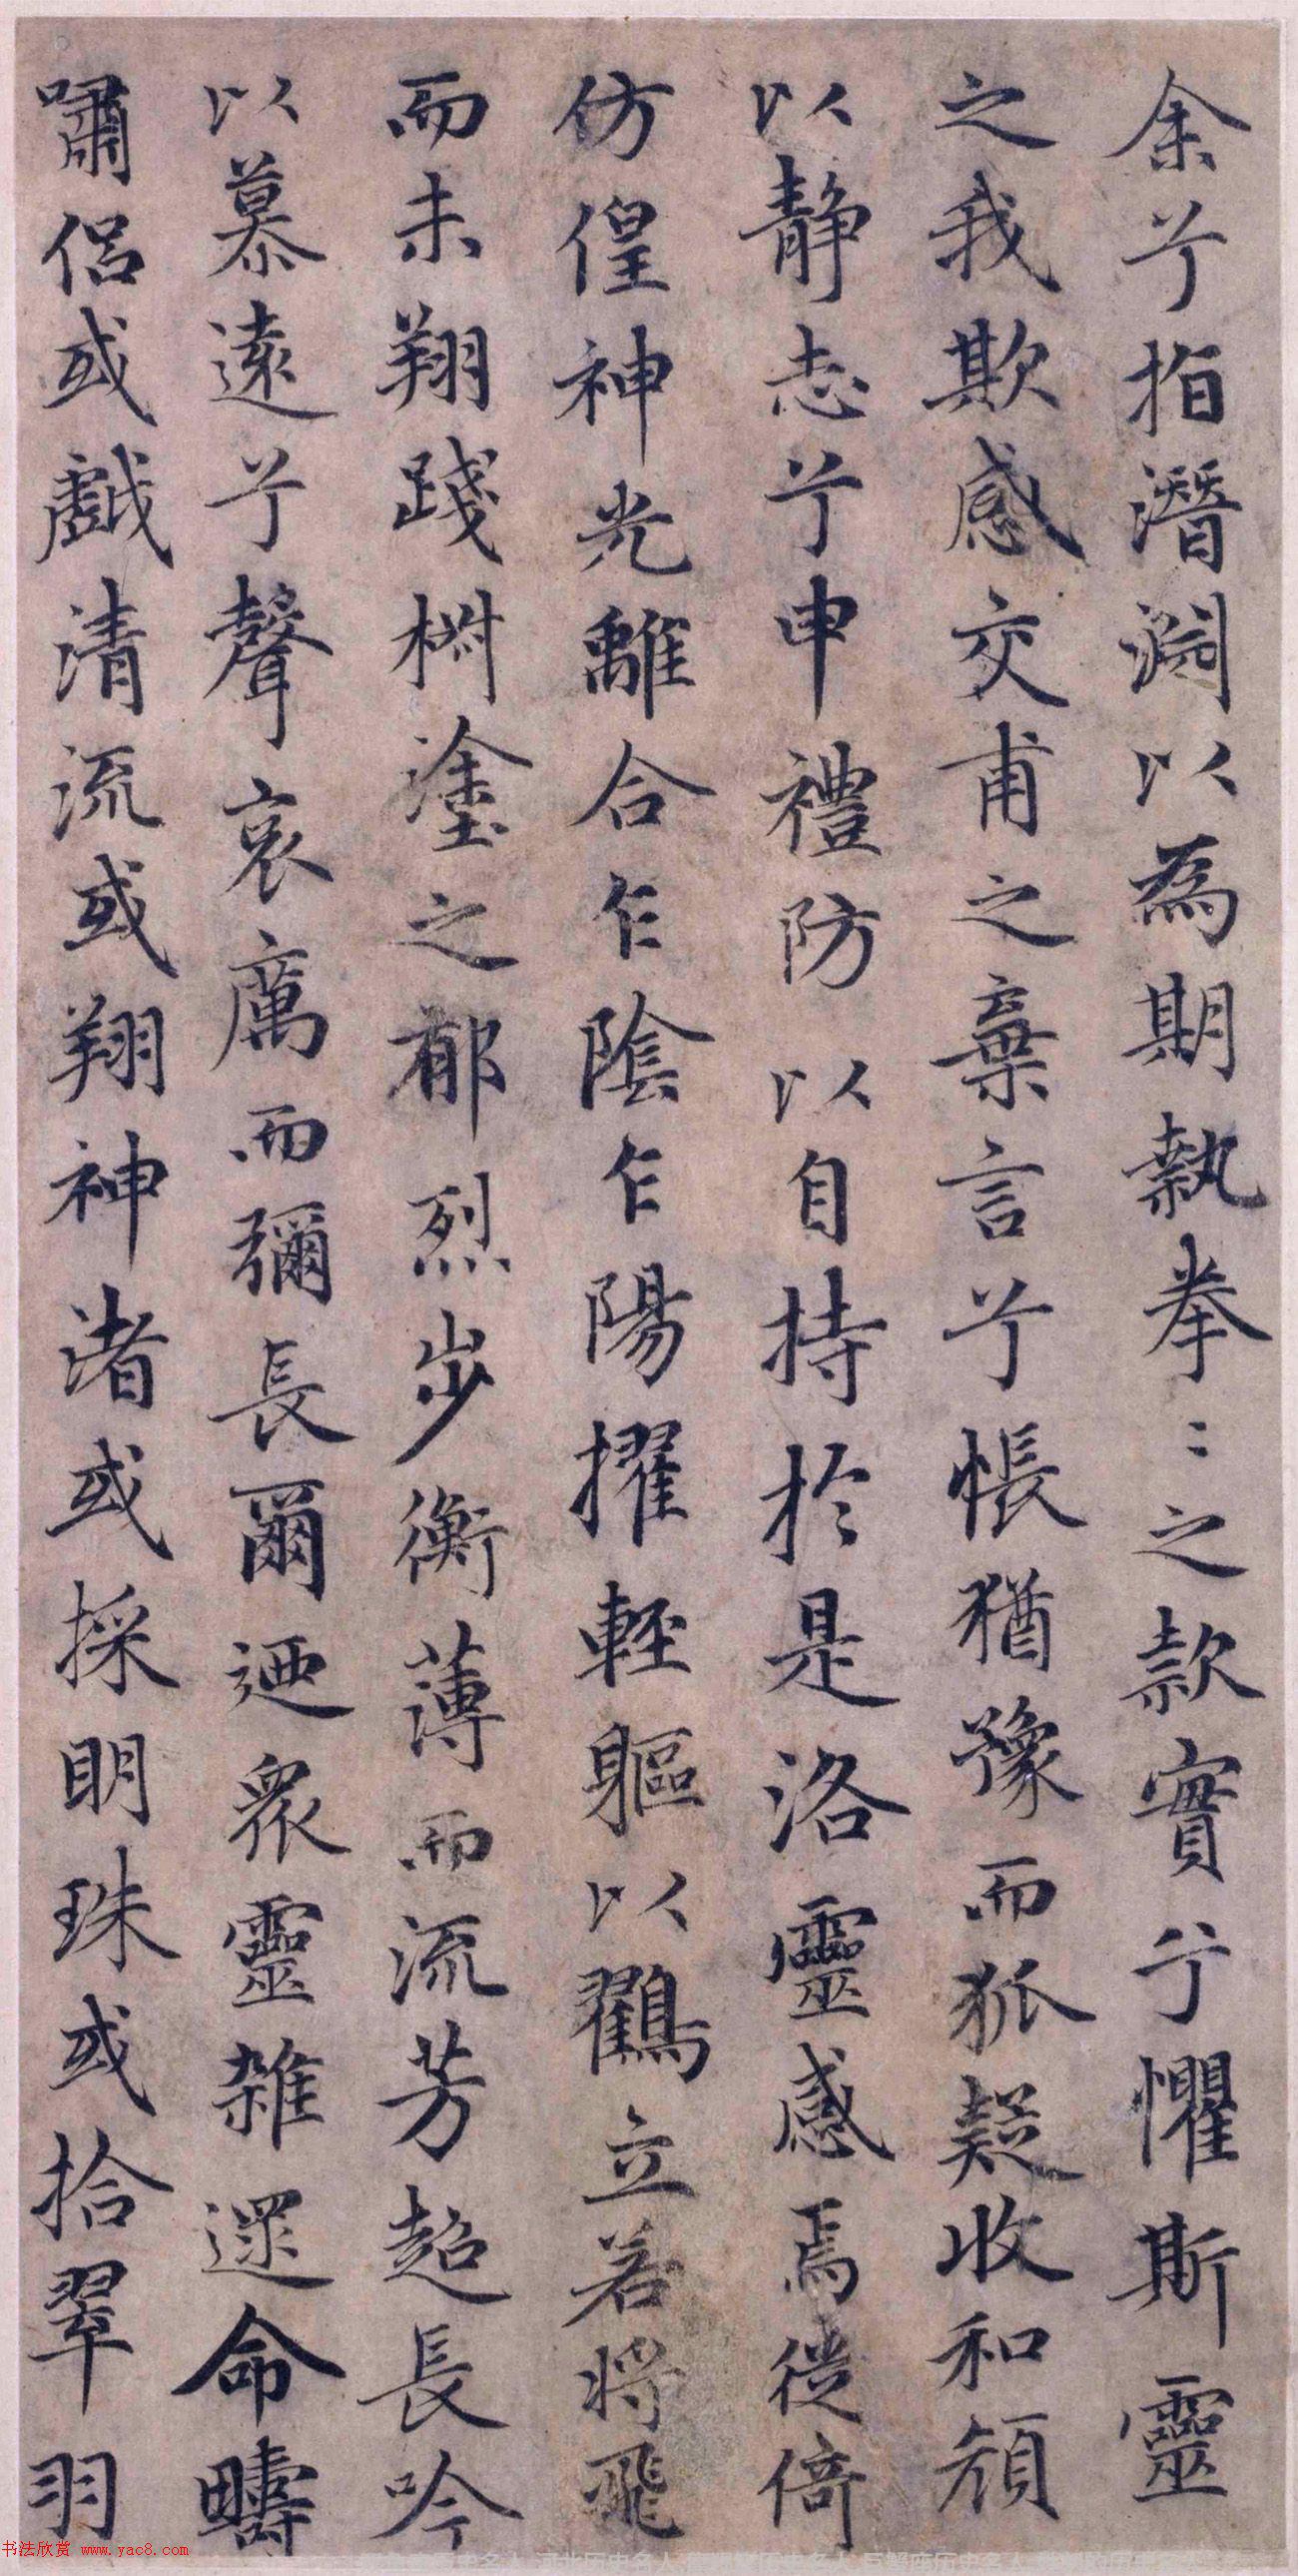 余兮指潛淵以為期執拳〻之款實兮懼斯靈
之我欺感交甫之棄言兮悵猶豫而狐疑收和顏
以靜志兮申禮防以自持於是洛靈感焉徙倚
仿偟神光離合乍陰乍陽擢輕軀以鸖立若將飛
而未翔踐椒塗之郁烈步衡薄而流芳超長吟
以慕遠兮聲哀厲而彌長爾迺眾靈雜遝命疇
嘯侶或戲清流或翔神渚或採明珠或拾翠羽
书法欣赏 www.yac8.com